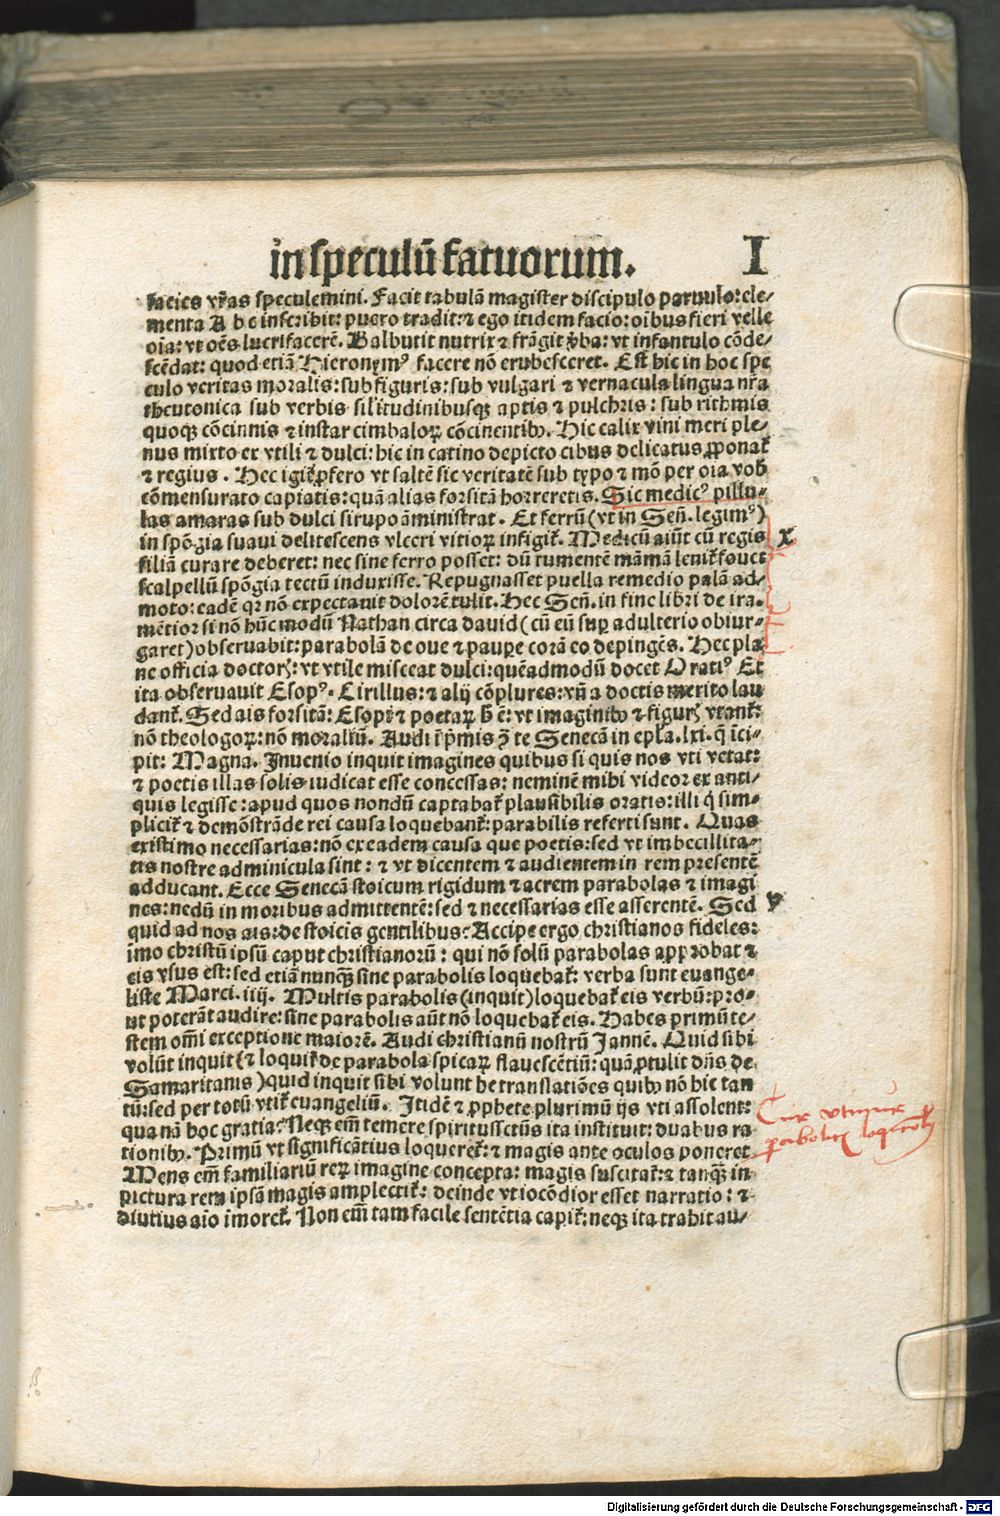 in speculū fatuorum. I
facies vr̄as speculemini. Facit tabulā magister discipulo paruulo: ele⸗
menta A b c inscribit: puero tradit: ⁊ ego itidem facio: oībus fieri velle
oīa: vt oēs lucrifacerē. Balbutit nutrix ⁊ frāgit v̄ba: vt infantulo cōde⸗
scēdat: quod etiā Hieronymꝰ facere nō erubesceret. Est hic in hoc spe
culo veritas moralis: sub figuris: sub vulgari ⁊ vernacula lingua nr̄a
theutonica sub verbis sil'itudinibusqꝫ aptis ⁊ pulchris: sub rithmis
quoqꝫ cōcinnis ⁊ instar cimbaloꝝ cōcinentibꝰ. Hic calix vini meri ple⸗
nus mixto ex vtili ⁊ dulci: hic in catino depicto cibus delicatus ꝓponat̄
⁊ regius. Hec igit̄ ꝓfero vt saltē sic veritatē sub typo ⁊ mō per oīa vob̄
cōmensurato capiatis: quā alias forsitā horreretis. Sic medicꝰ pillu⸗
las amaras sub dulci sirupo āministrat. Et ferrū (vt in Señ. legimꝰ)
in spōgia suaui delitescens vlceri vitioꝝ infigit̄. Medicū aiūt cū regis x
filiā curare deberet: nec sine ferro posset: dū tumentē māmā lenit̄ fouet
scalpellū spōgia tectū induxisse. Repugnasset puella remedio palā ad⸗
moto: eadē qꝛ nō expectauit dolorē tulit. Hec Señ. in fine libri de ira.
mētior si nō hūc modū Nathan circa dauid (cū eū suꝑ adulterio obiur⸗
garet) obseruabit: parabolā de oue ⁊ pauꝑe corā eo depingēs. Hec pla
ne officia doctoꝝ: vt vtile misceat dulci: quēadmodū docet Oratiꝰ Et
ita obseruauit Esopꝰ. Cirillus: ⁊ alij cōplures: vn̄ a doctis merito lau
dant̄. Sed ais forsitā: Esopi ⁊ poetaꝝ h̄ ē: vt imaginibꝰ ⁊ figurꝭ vtant̄:
nō theologoꝝ: nō moraliū. Audi ī pmis ꝯ te Senecā in epl̄a. lxi. q̄ īci⸗
pit: Magna. Inuenio inquit imagines quibus si quis nos vti vetat:
⁊ poetis illas solis iudicat esse concessas: neminē mihi videor ex anti⸗
quis legisse: apud quos nondū captabat̄ plausibilis oratis: illi q̄ sim⸗
plicit̄ ⁊ demōstrāde rei causa loquebant̄: parabilis referti sunt. Quas
existimo necessarias: nō ex eadem causa que poetis: sed vt imbecillita⸗
tis nostre adminicula sint: ⁊ vt dicentem ⁊ audientem in rem presentē
adducant. Ecce Senecā stoicum rigidum ⁊ acrem parabolas ⁊ imagi
nes: nedū in moribus admittentē: sed ⁊ necessarias esse asserentē. Sed y
quid ad nos ais: de stoicis gentilibus? Accipe ergo christianos fideles:
imo christū ipsū caput christianorū: qui nō solū parabolas approbat ⁊
eis vsus est: sed etiā nunqꝫ sine parabolis loquebat̄: verba sunt euange⸗
liste Marci. iiij. Multis parabolis (inquit) loquebat̄ eis verbū: pro⸗
ut poterāt audire: sine parabolis aūt nō loquebat̄ eis. Habes primū te⸗
stem om̄i exceptione maiorē. Audi christianū nostrū Jannē. Quid sibi
volūt inquit (⁊ loquit̄ de parabola spicaꝝ flauescētiū: quā ꝓtulit dn̄s de
Samaritanis) quid inquit sibi volunt he translatiōes quibꝰ nō hic tan
tū: sed per totū vtit̄ euangeliū. Itidē ⁊ ꝓphete plurimū ijs vti assolent: Cur vtimur
qua nā hoc gratia? Neqꝫ em̄ temere spiritussctūs ita instituit: duabus ra parabolis
tionibꝰ. Primū vt significātius loqueret̄: ⁊ magis ante oculos poneret
Mens em̄ familiariū reꝝ imagine concepta: magis suscitat̄: ⁊ tanqꝫ in
pictura rem ipsā magis amplectit̄: deinde vt iocōdior esset narratio: ⁊
diutius aīo īmoret̄. Non em̄ tam facile sentētia capit̄: neqꝫ ita trahit au⸗
Digitalisierung gefördert durch die Deutsche Forschungsgemeinschaft - DFG